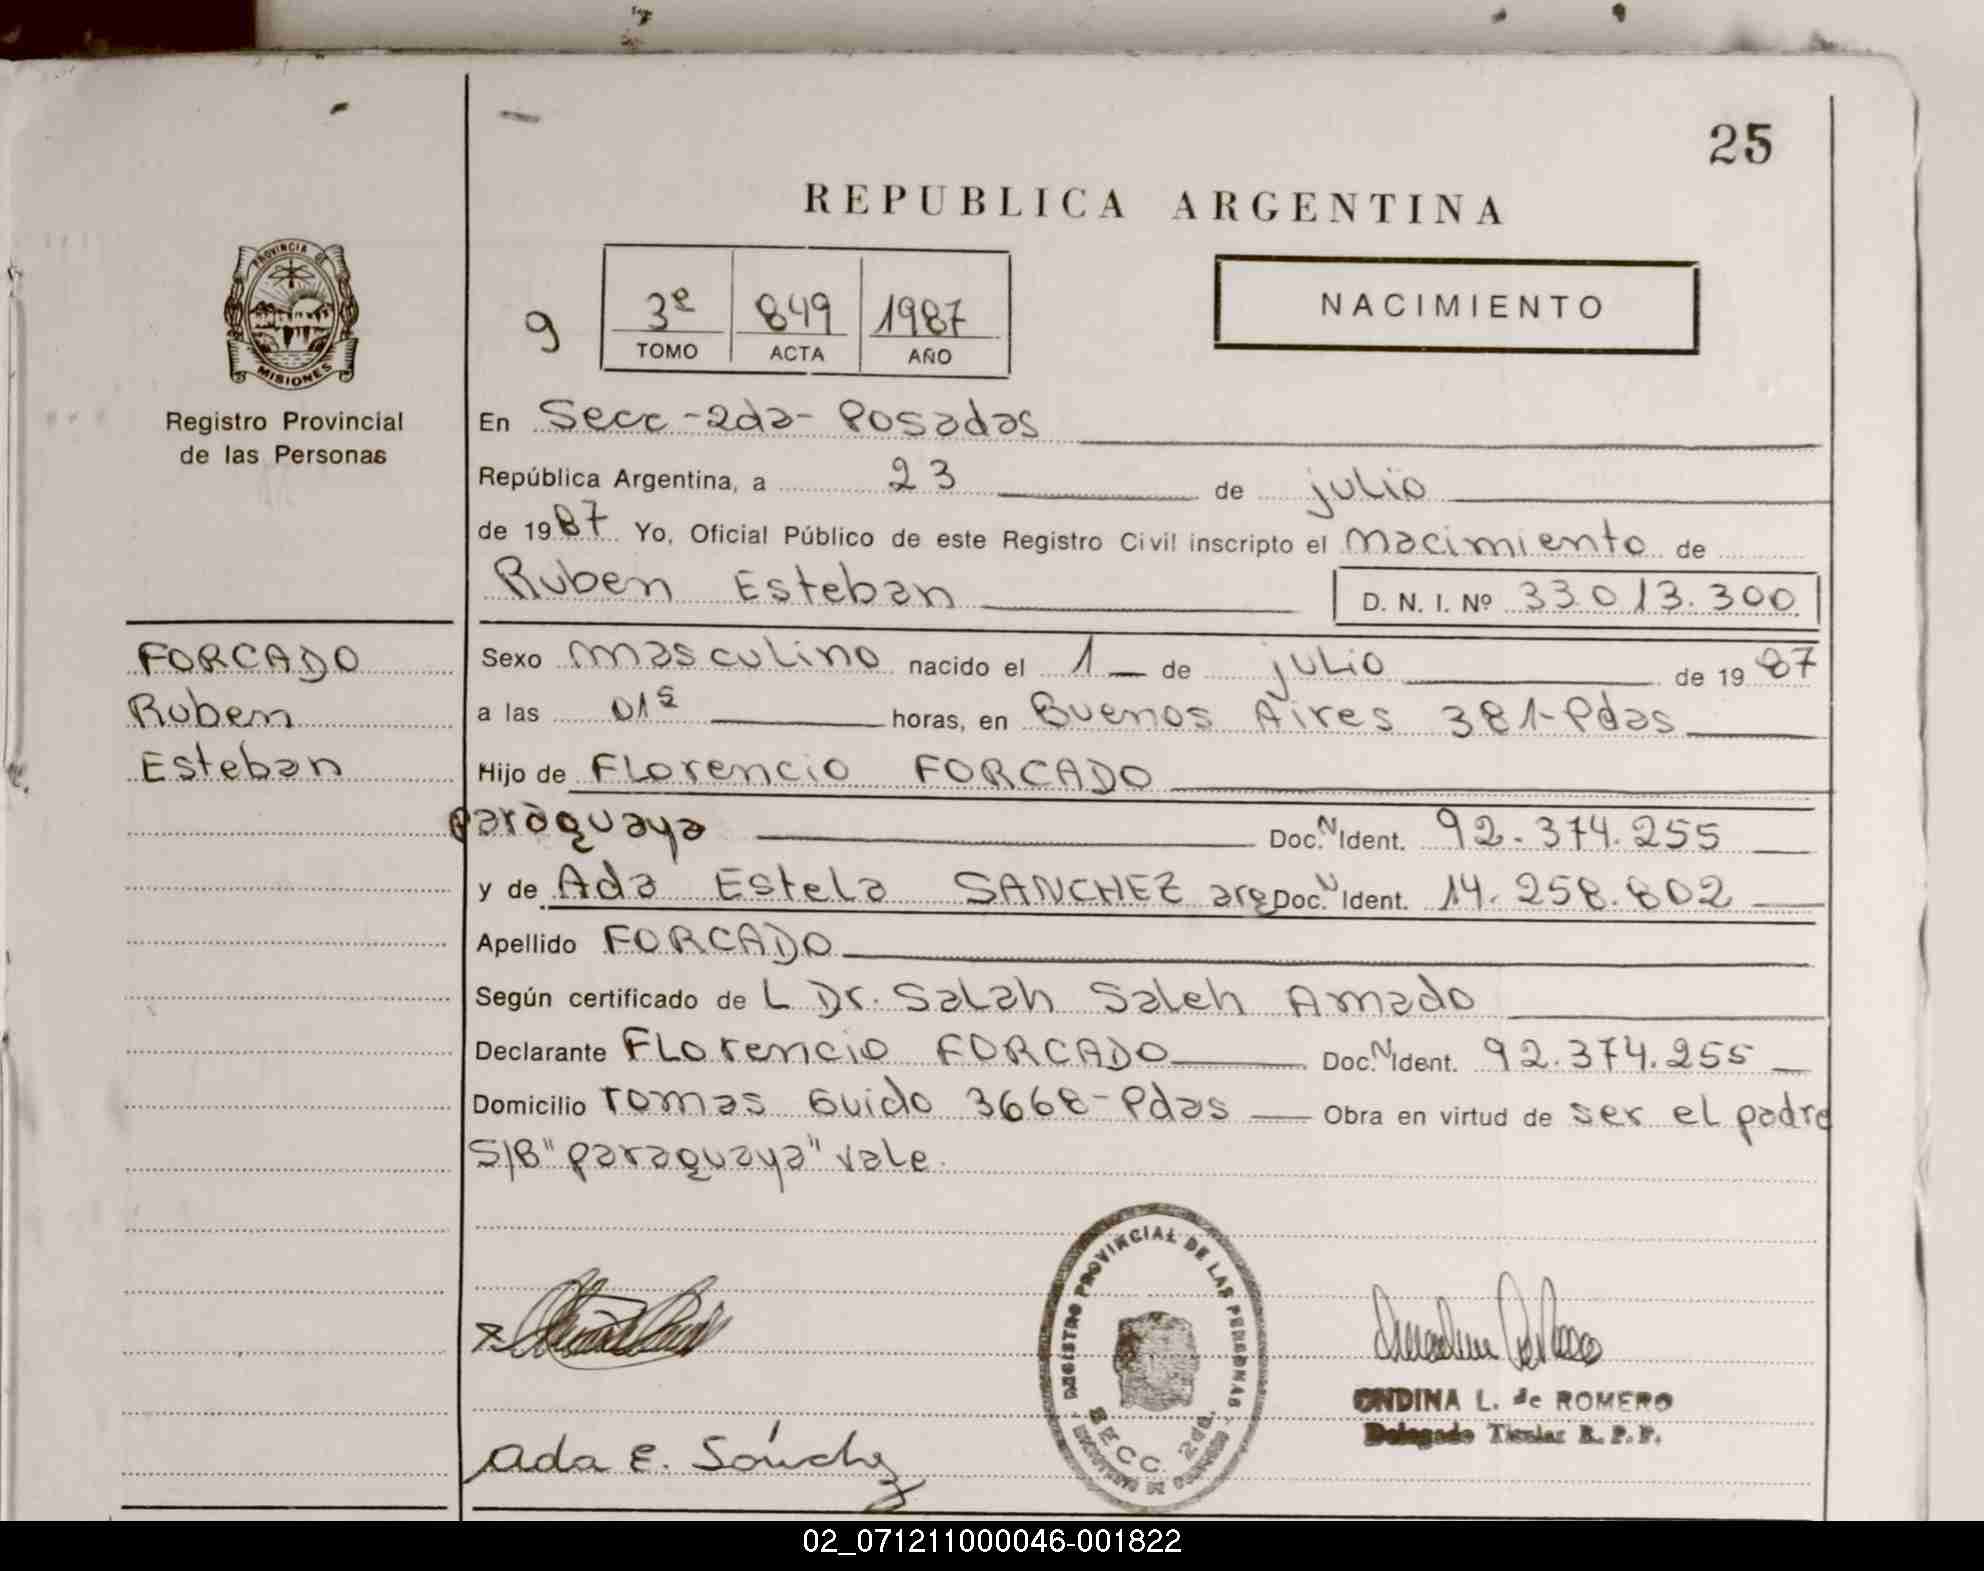 25
REPUBLICA ARGENTINA
PROVINCIA DE
MISIONES
Registro Provincial
de las Personas
9
3º 849 1987
TOMO ACTA AÑO
NACIMIENTO
En Secc-2da-Posadas
República Argentina, a 23 de julio
de 1987 Yo, Oficial Público de este Registro Civil inscripto el nacimiento de
Ruben Esteban D. N. I. Nº 33.013.300
FORCADO
Ruben
Esteban
Sexo masculino nacido el 1 de julio de 1987
a las 01s horas, en Buenos Aires 381-Pdas
Hijo de Florencio FORCADO
paraguaya Doc. N Ident. 92.374.255
y de Ada Estela SANCHEZ arg Doc. N Ident. 14.258.802
Apellido FORCADO
Según certificado de L Dr. Salah Saleh Amado
Declarante Florencio FORCADO Doc. N Ident. 92.374.255
Domicilio Tomas Guido 3668-Pdas Obra en virtud de ser el padre
S/B "paraguaya" vale.
REGISTRO PROVINCIAL DE LAS PERSONAS
SECC. 2da.
ONDINA L. de ROMERO
Delegado Titular R. P. P.
Ada E. Sánchez
02_071211000046-001822